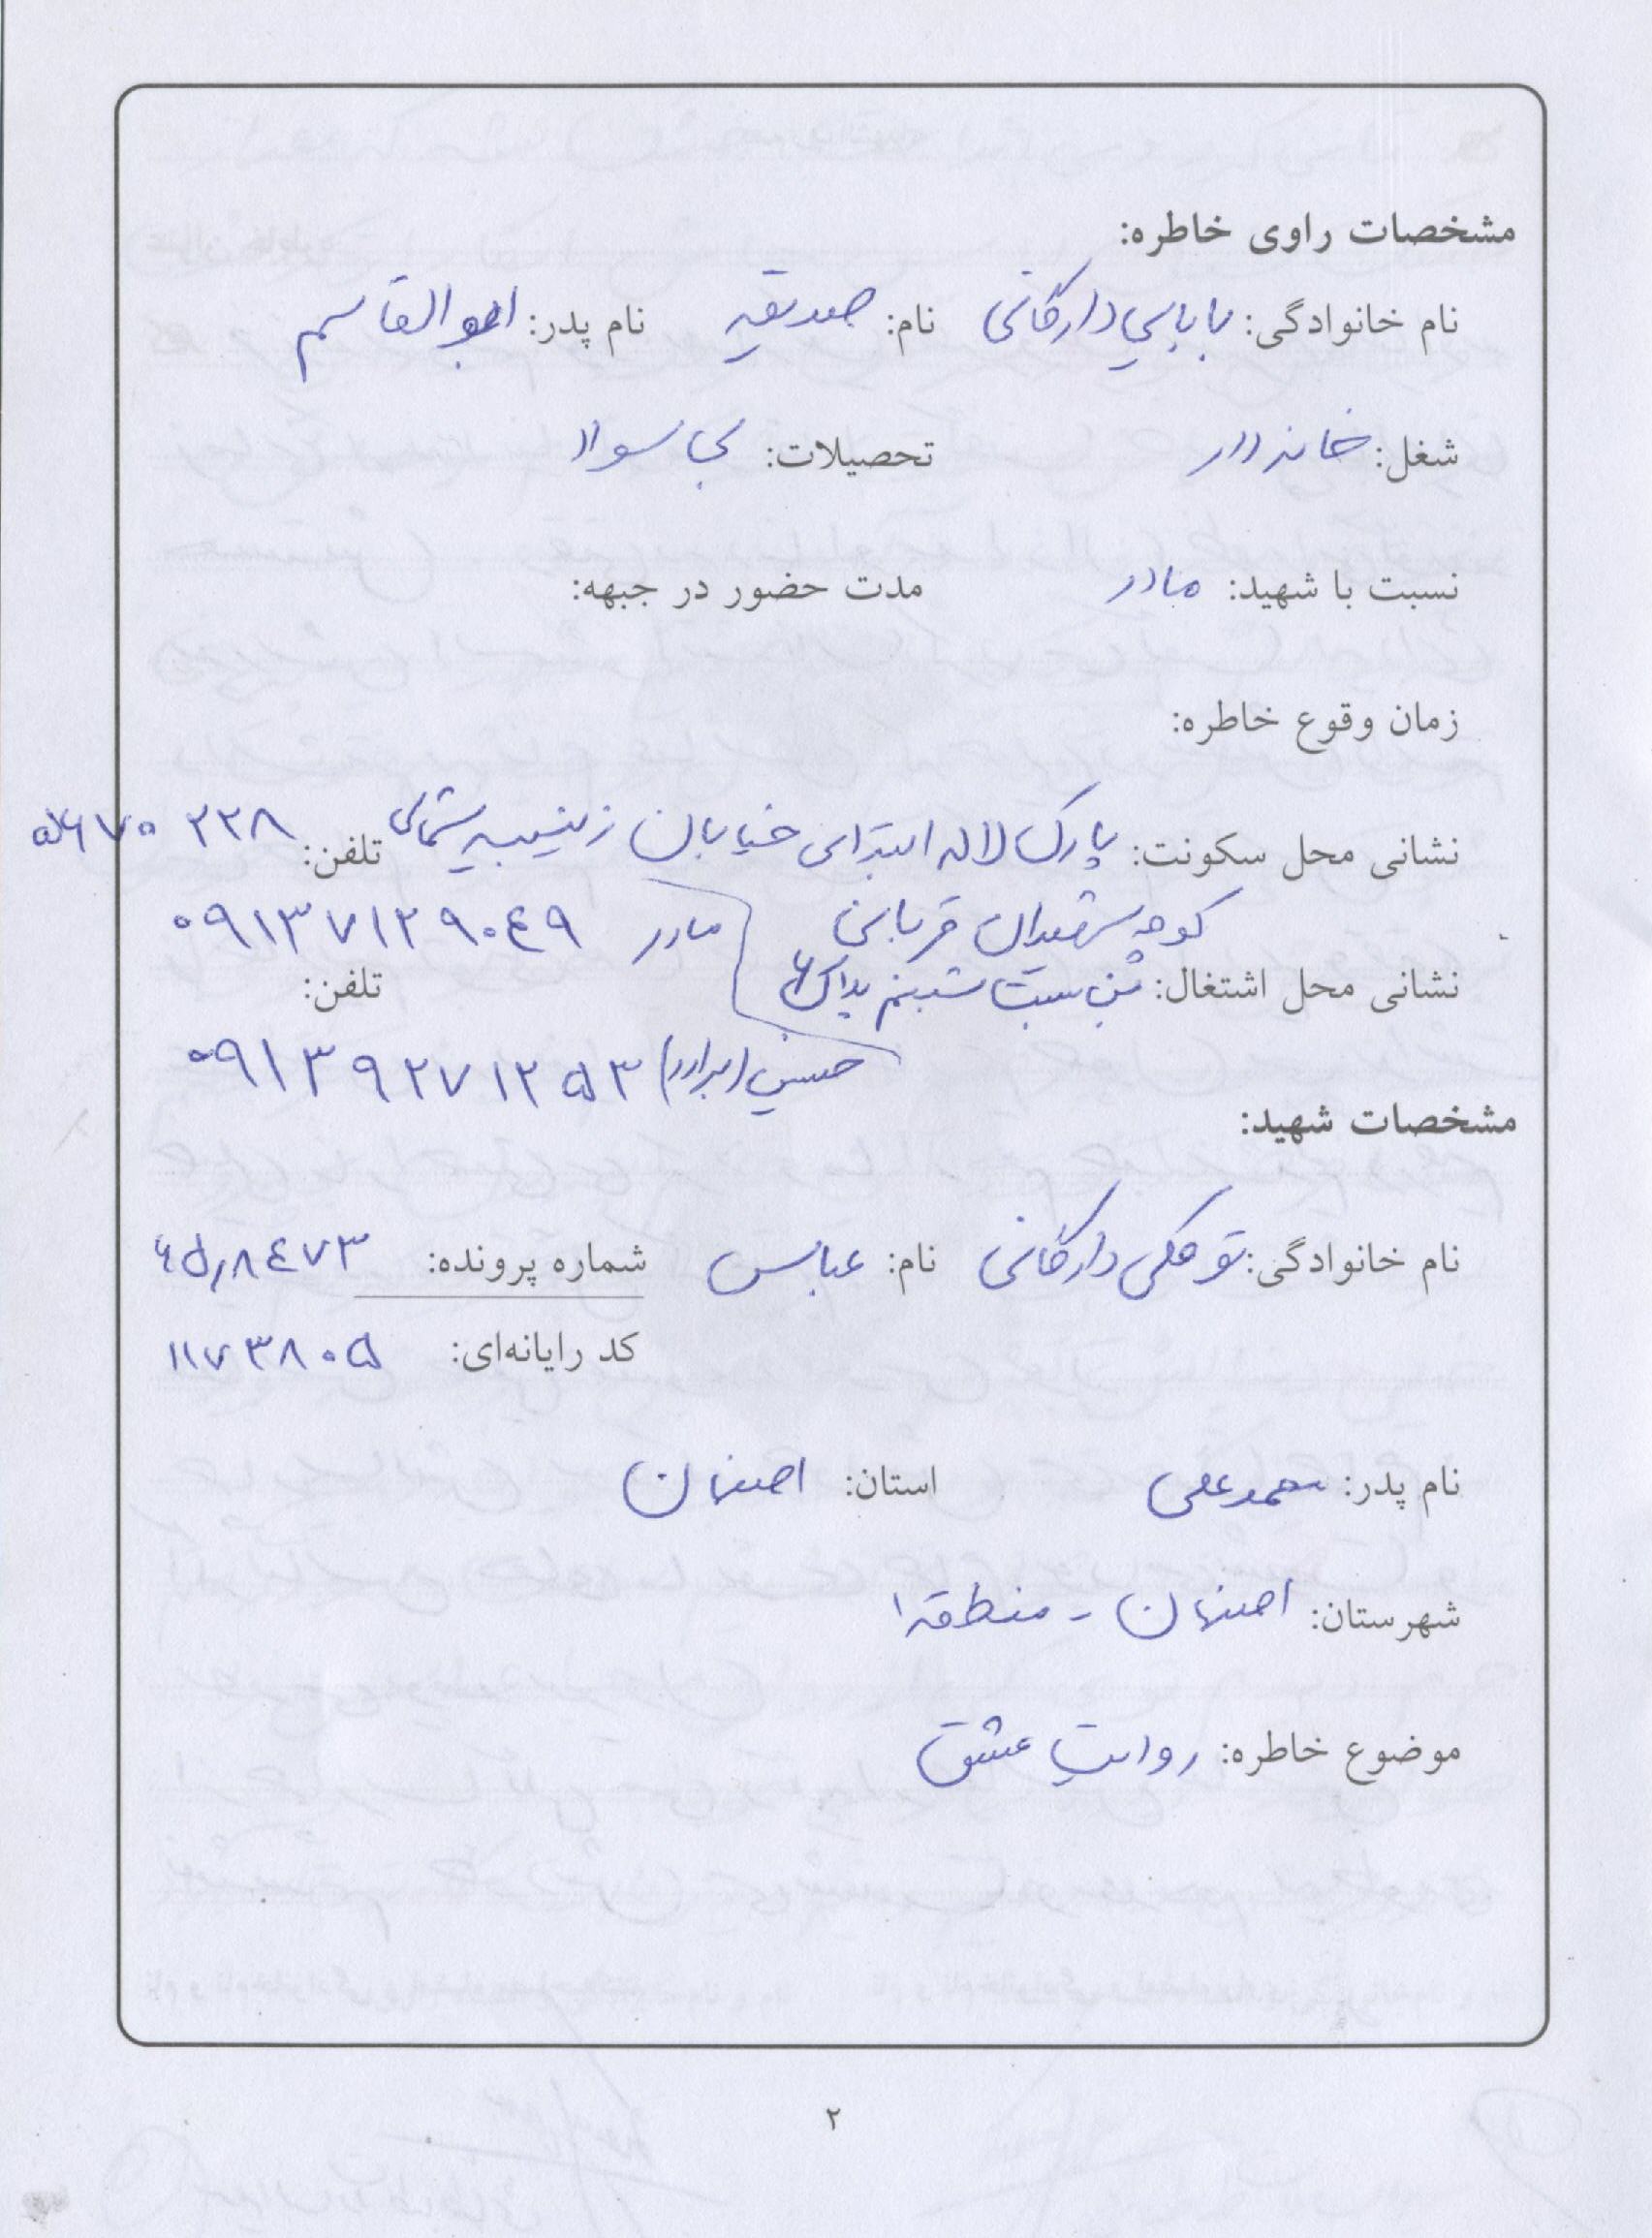 مشخصات راوی خاطره:
نام خانوادگی: بابایی دارگانی نام: صدیقه نام پدر: ابوالقاسم
شغل: خانه دار تحصیلات: بی سواد
نسبت با شهید: مادر مدت حضور در جبهه:
زمان وقوع خاطره:
نشانی محل سکونت: پارک لاله ابتدای خیابان زینبیه شمالی تلفن: ۲۲۸ ۵۶۷۰
کوچه شهیدان قربانی مادر ۰۹۱۳۷۱۲۹۰۴۹
نشانی محل اشتغال: بن بست شبنم پلاک ۶ تلفن:
حسین (برادر) ۰۹۱۳۹۲۷۱۲۵۳
مشخصات شهید:
نام خانوادگی: توکلی دارگانی نام: عباس شماره پرونده: ۶۵٫۸۴۷۳
کد رایانه‌ای: ۱۱۷۳۸۰۵
نام پدر: محمدعلی استان: اصفهان
شهرستان: اصفهان - منطقه ۱
موضوع خاطره: روایت عشق
۲